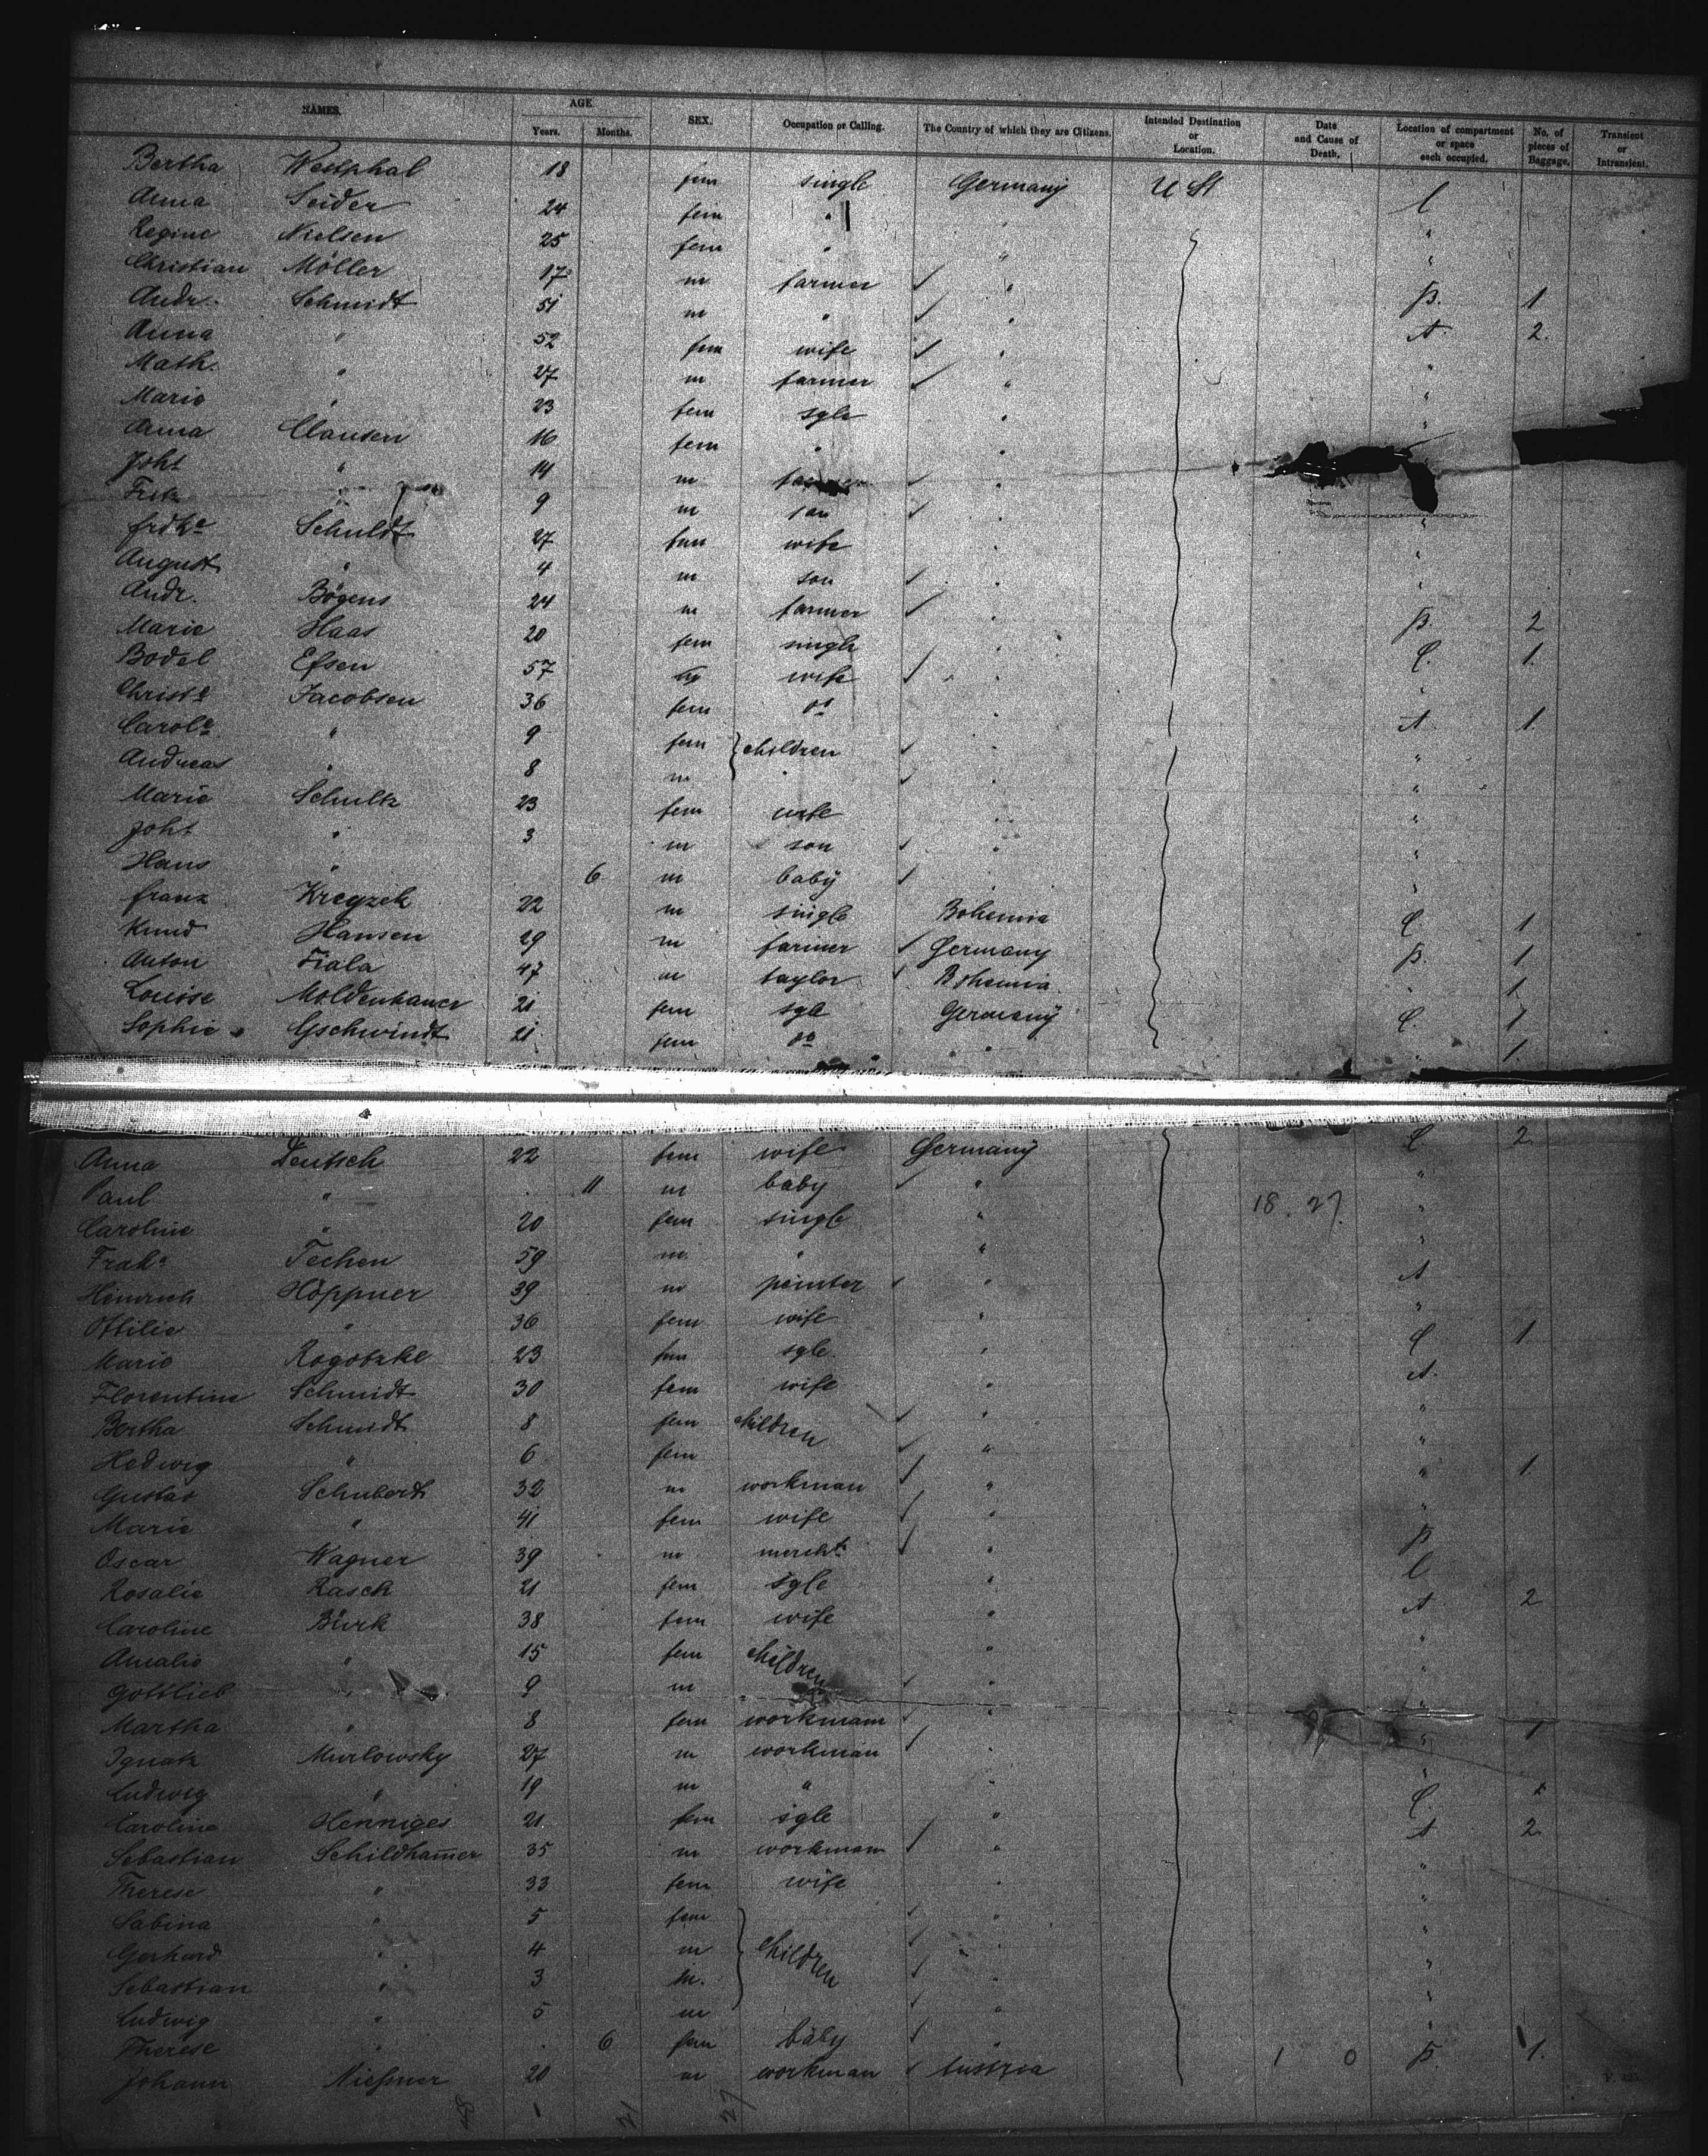 NAMES. AGE SEX. Occupation or Calling. The Country of which they are Citizens. Intended Destination or Location. Date and Cause of Death. Location of compartment or space each occupied. No. of pieces of Baggage. Transient or Intransient.
Years. Months.
Bertha Westphal 18 fem single Germany U St C
Anna Seider 24 fem " " "
Regine Nielsen 25 fem " " "
Christian Möller 17 m farmer " B. 1
Andr. Schmidt 51 m " " A. 2.
Anna " 52 fem wife " "
Math. " 27 m farmer " "
Marie " 23 fem sgle " "
Anna Clausen 16 fem " "
Joht " 14 m farmer "
Fritz " 9 m "
frdke Schuldt 27 fem wife " "
August " 4 m son " "
Andr. Bögens 24 m farmer " B. 2
Marie Haas 20 fem single " C. 1.
Bodel Efsen 57 wife " "
Christe Jacobsen 36 fem do " A 1.
Carole " 9 fem children " "
Andreas " 8 m " " "
Marie Schultz 23 fem wife " "
Joht " 3 m son " "
Hans " 6 m baby " "
franz Kregzek 22 m single Bohemia C. 1
Knud Hansen 29 m farmer Germany B. 1
Anton Fiala 47 m taylor Bohemia " 1.
Louise Moldenhauer 21 fem sgle Germany C. 1
Sophie Gschwindt 21 fem do " " 1.
Anna Deutsch 22 fem wife Germany C 2
Paul " 11 m baby " "
18. 27.
Caroline " 20 fem single " "
Frdke Techen 59 m " " "
Heinrich Höppner 39 m peinter " A
Ottilie " 36 fem wife " "
Marie Rogotzke 23 fem sgle. " C 1
Florentine Schmidt 30 fem wife " A.
Bertha Schmidt 8 fem children " "
Hedwig " 6 fem " "
Gustav Schubert 32 m workman " " 1
Marie " 41 fem wife " "
Oscar Wagner 39 m mercht. " B
Rosalie Rasch 21 fem sgle " C
Caroline Bürk 38 fem wife " A 2
Amalie " 15 fem children " "
Gottlieb " 9 m " "
Martha " 8 fem workmam " "
Ignatz Murlowsky 27 m workman " " 1
Ludwig " 19 m " " "
Caroline Henniges 21 fem sgle " C.
Sebastian Schildhamer 35 m workmam " A 2
Therese " 33 fem wife " "
Sabina " 5 fem children " "
Gerhard " 4 m " "
Sebastian " 3 m. " "
Ludwig " 5 m " "
Therese " 6 fem baby " "
Johann Niessner 20 m workman Austria 1 0 B. 1.
21 27